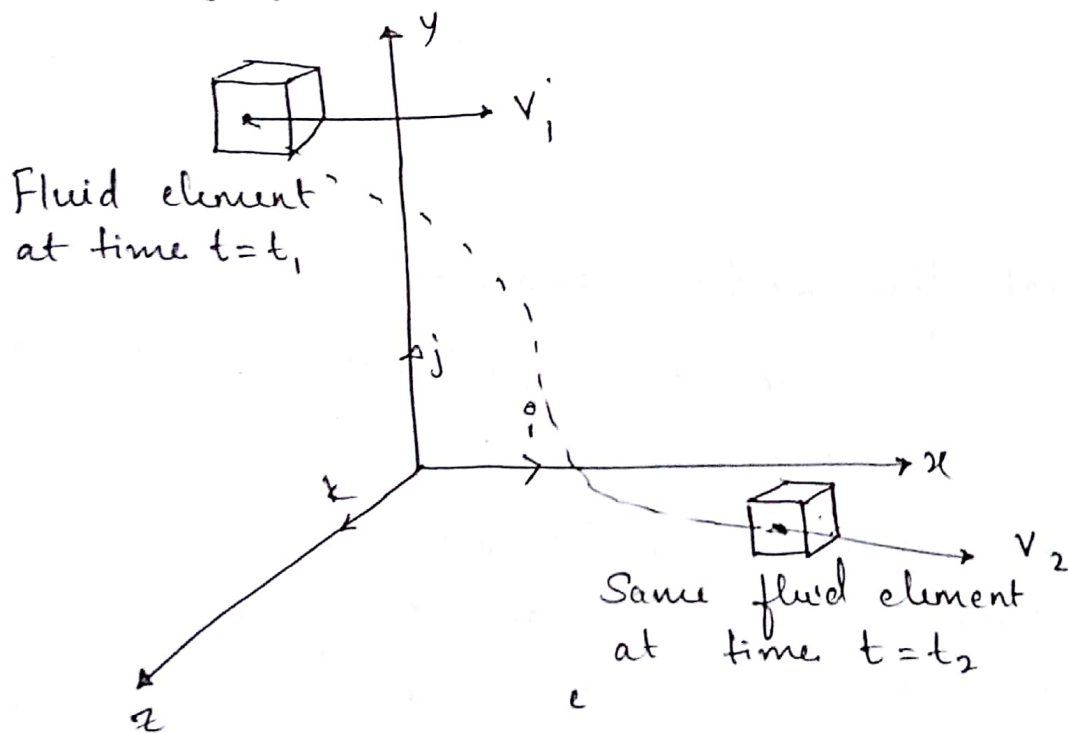 y
V₁
Fluid element
at time t=t₁
j
i
x
k
V₂
Same fluid element
at time t=t₂
z